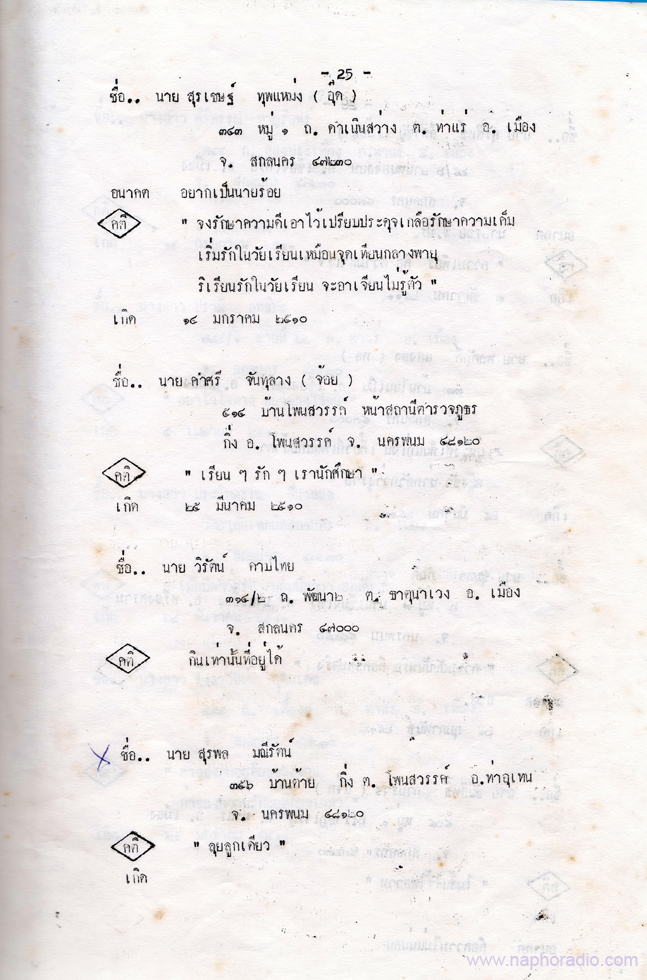 - 25 -
ชื่อ.. นาย สุรเชษฐ์ ทุพแหม่ง ( อุ๊ค )
๓๔๓ หมู่ ๑ ถ. ดำเนินสว่าง ต. ท่าแร่ อ. เมือง
จ. สกลนคร ๔๗๒๓๐
อนาคต อยากเป็นนายร้อย
คติ " จงรักษาความดีเอาไว้เปรียบประดุจเกลือรักษาความเค็ม
เริ่มรักในวัยเรียนเหมือนจุดเทียนกลางพายุ
ริเรียนรักในวัยเรียน จะอาเจียนไม่รู้ตัว "
เกิด ๑๔ มกราคม ๒๕๑๐
ชื่อ.. นาย คำศรี จันทุลาง ( จ้อย )
๕๑๔ บ้านโพนสวรรค์ หน้าสถานีตำรวจภูธร
กิ่ง อ. โพนสวรรค์ จ. นครพนม ๔๘๑๒๐
คติ " เรียน ๆ รัก ๆ เรานักศึกษา "
เกิด ๒๕ มีนาคม ๒๕๑๐
ชื่อ.. นาย วิรัตน์ ดาบไทย
๓๑๔/๒ ถ. พัฒนา๒ ต. ธาตุนาเวง อ. เมือง
จ. สกลนคร ๔๗๐๐๐
คติ กินเท่านั้นที่อยู่ได้
ชื่อ.. นาย สุรพล มณีรัตน์
๓๕๖ บ้านต้าย กิ่ง ต. โพนสวรรค์ อ.ท่าอุเทน
จ. นครพนม ๔๘๑๒๐
คติ " ลุยลูกเดียว "
เกิด
www.naphoradio.com